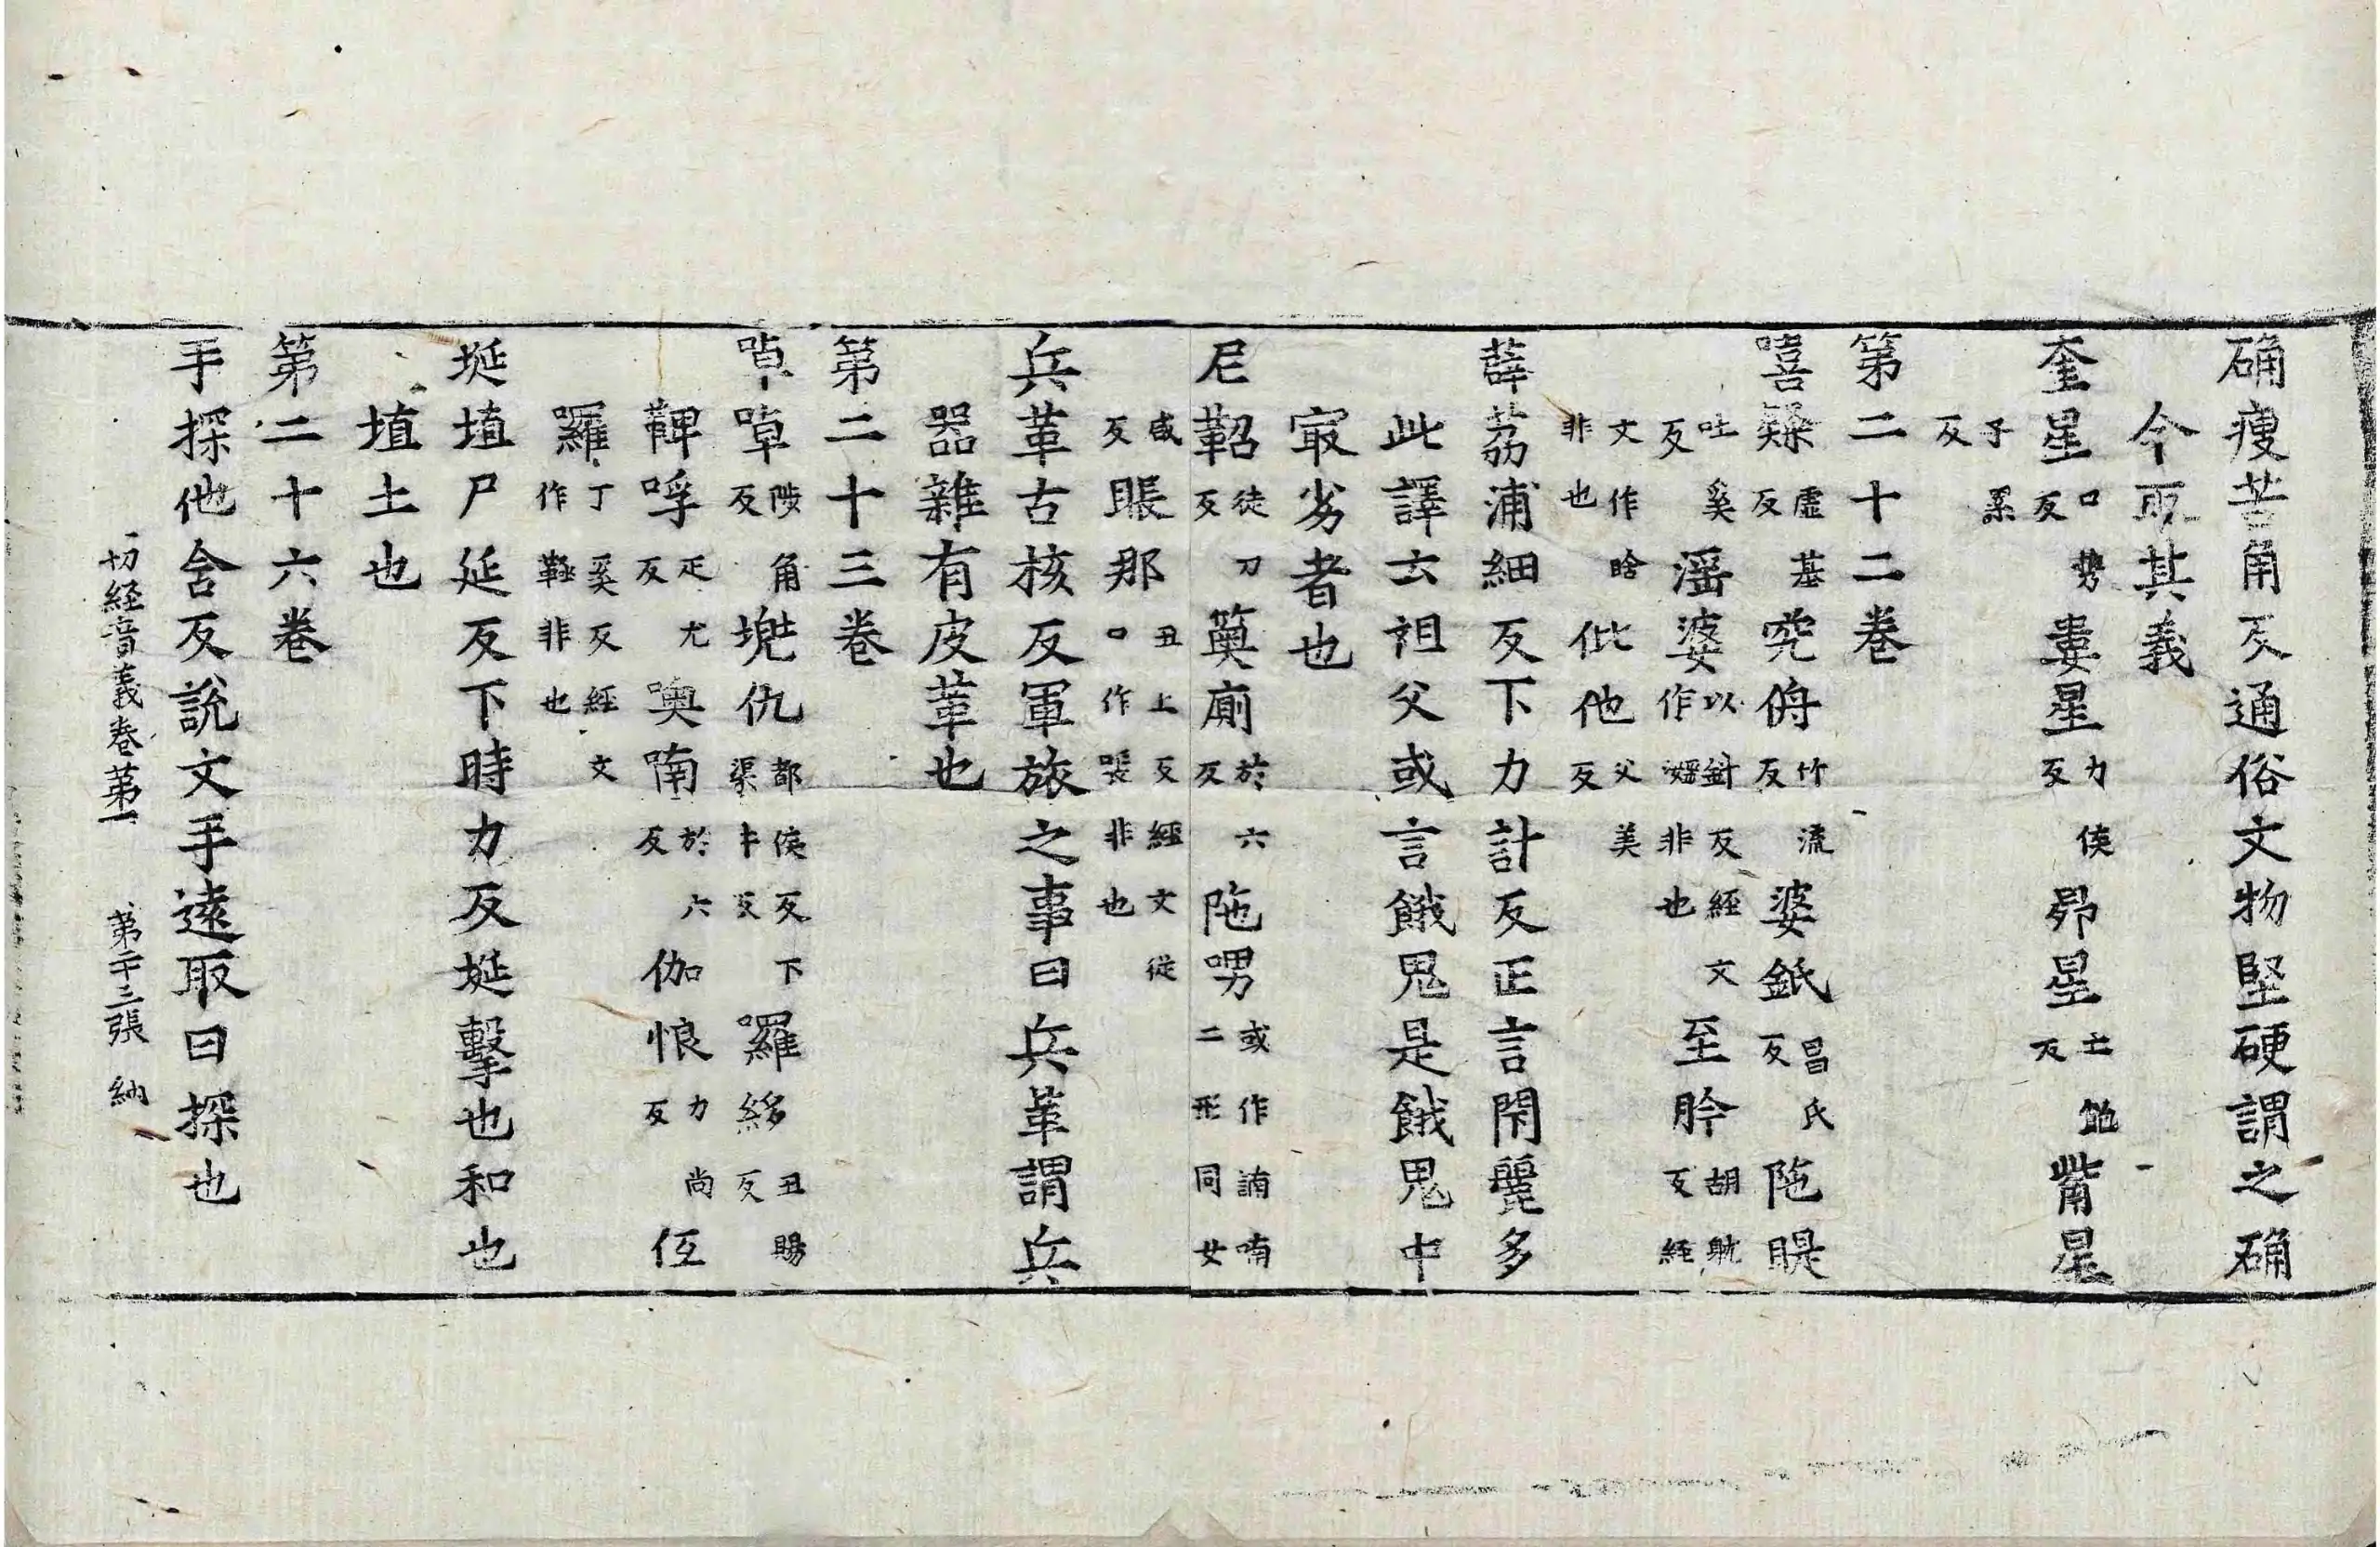 确瘦苦角反通俗文物堅硬謂之确
今取其義
奎星口勢反婁星力侯反昴星亡飽反觜星
子累反
第二十二卷
嘻㱡虛基反究侜竹流反婆䤠昌氏反陁睼
吐奚反滛婆以針反經文作婬非也至肣胡躭反經
文作晗非也仳他父美反
薜荔浦細反下力計反正言閇麗多
此譯云祖父或言餓鬼是餓鬼中
㝡劣者也
尼鞀徒刀反薁廁於六反陁㖠或作諵喃二形同女
咸反賬那丑上反經文從口作㗔非也
兵革古核反軍旅之事曰兵革謂兵
器雜有皮革也
第二十三卷
啅啅陟角反兠仇都侯反下渠牛反囉𦀗丑賜反
鞞呼疋尤反噢喃於六反伽悢力尚反㐰
囉丁奚反經文作䩞非也
埏埴尸延反下時力反埏擊也和也
埴土也
第二十六卷
手探他含反說文手遠取曰探也
一切經音義卷第一 第二十三張 納